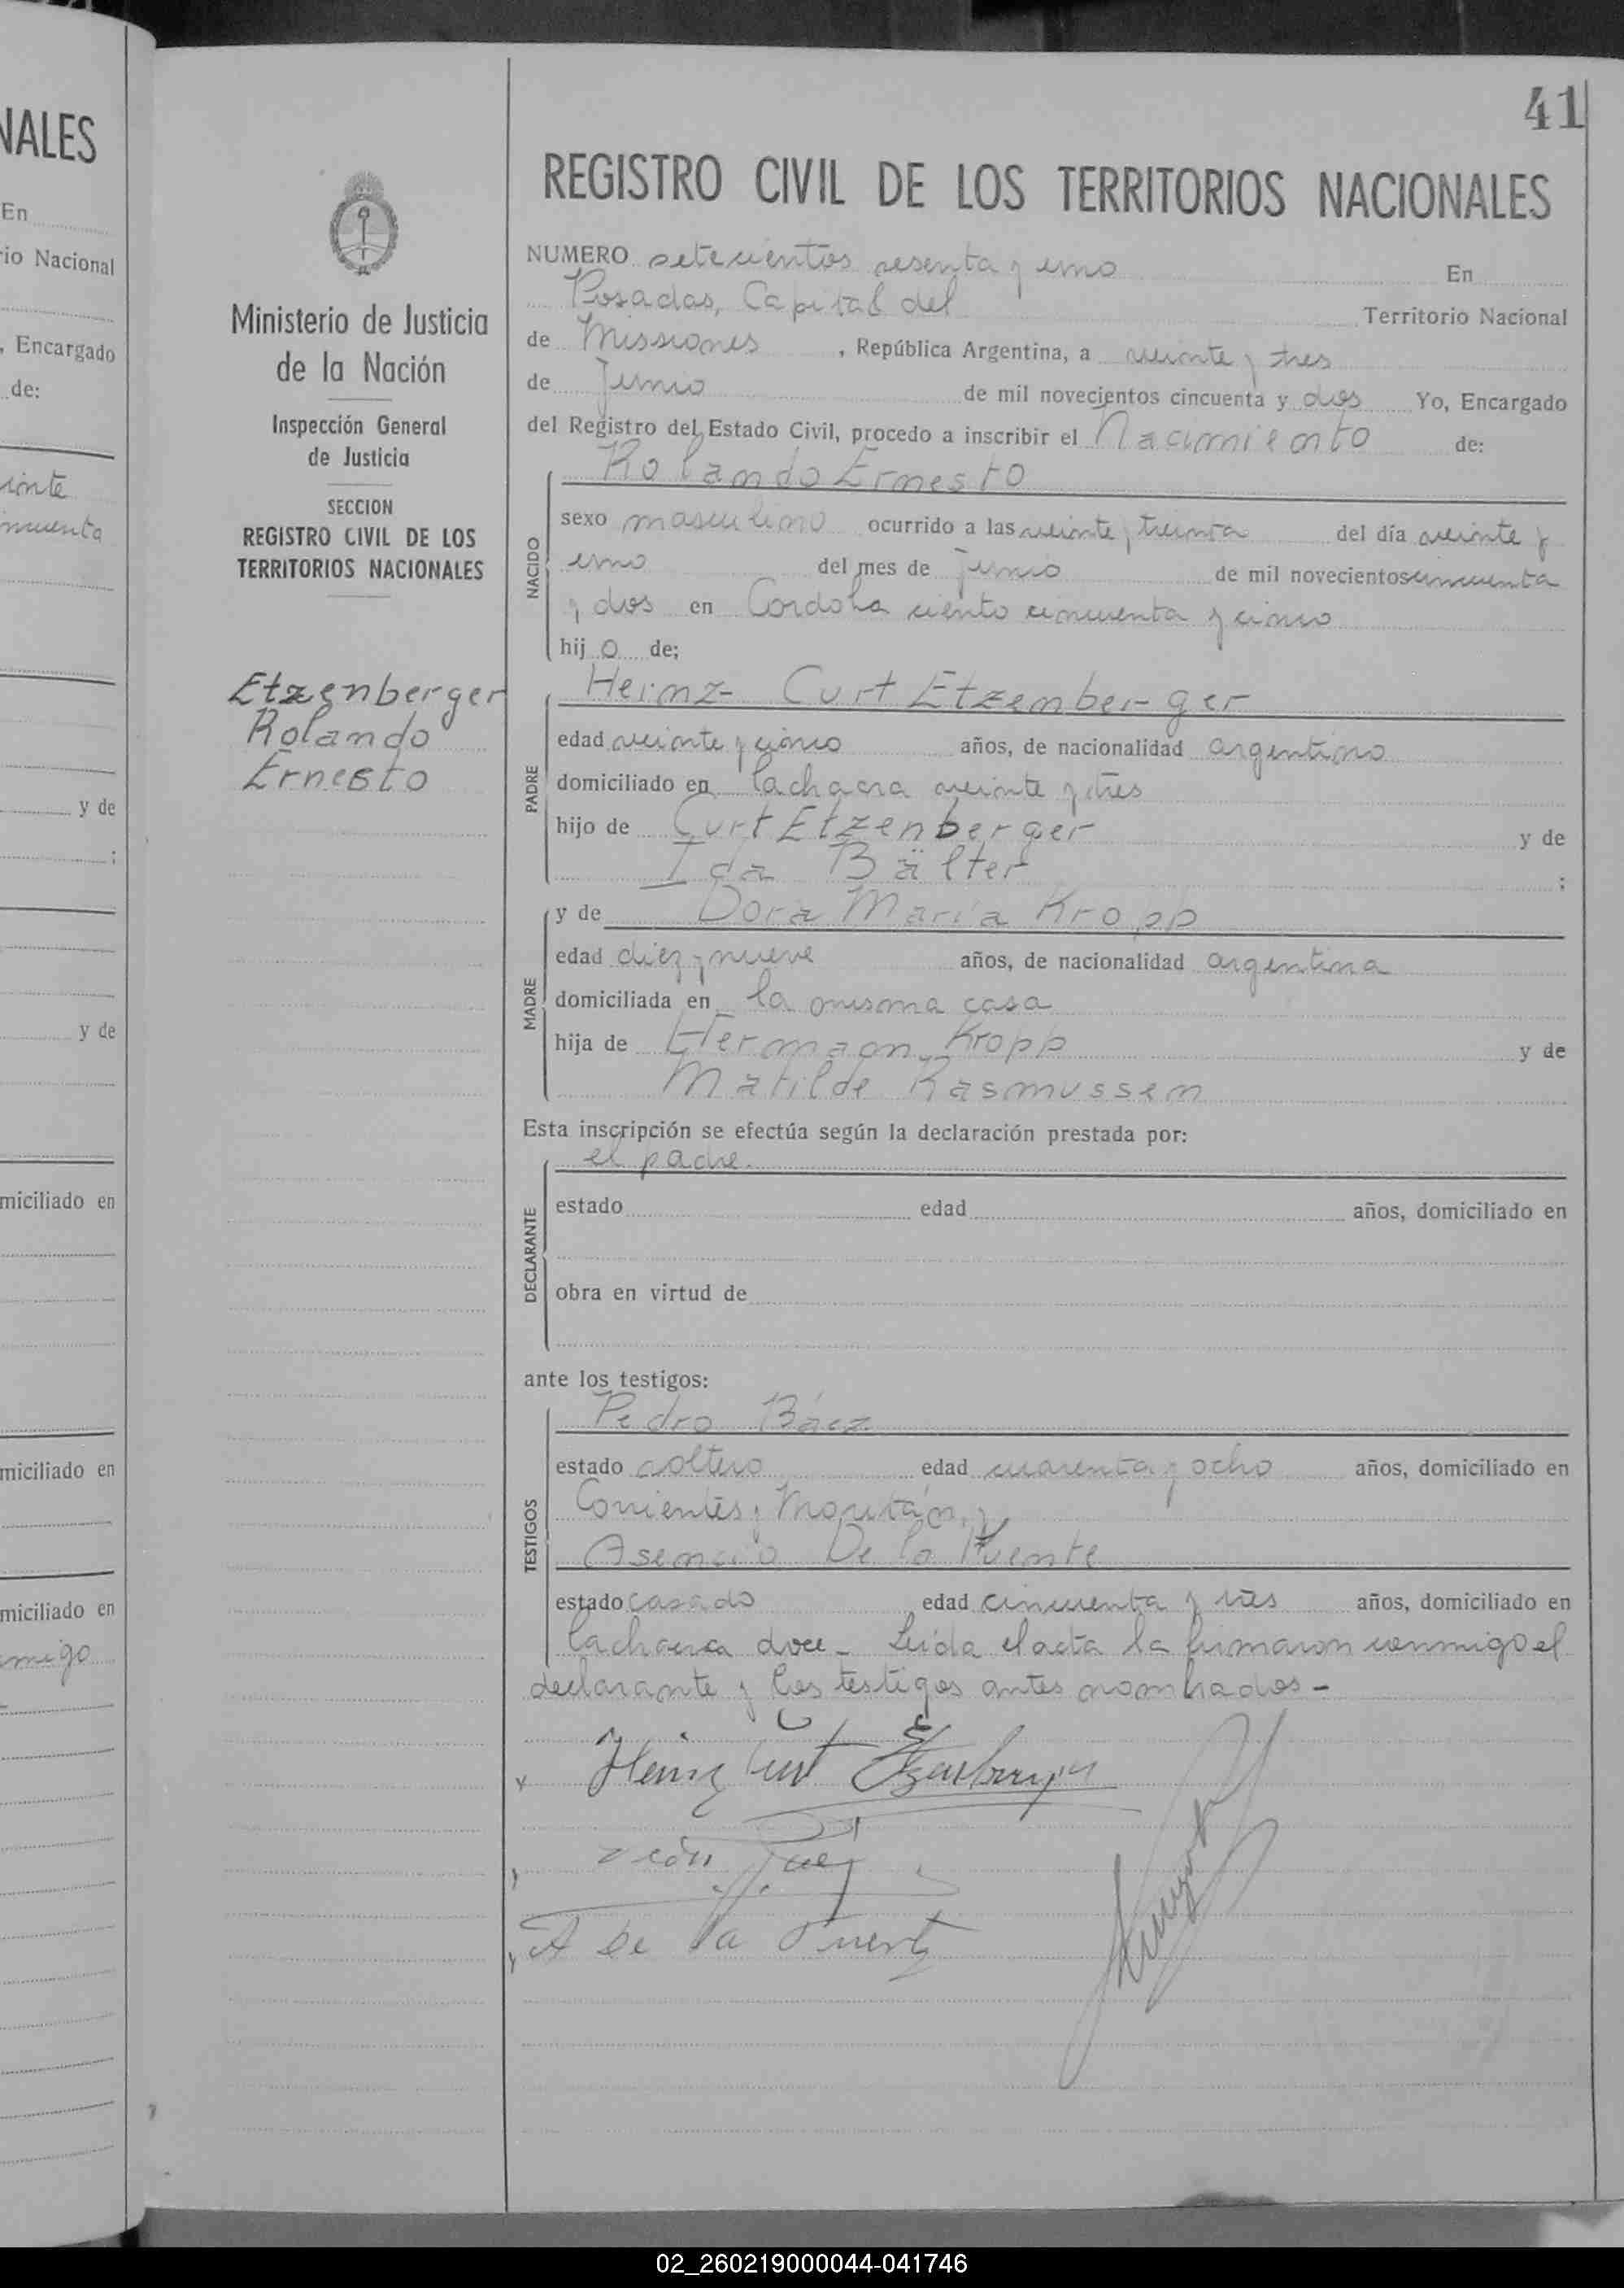 NALES
En
rio Nacional
, Encargado
de:
inte
incuenta
y de
;
y de
miciliado en
miciliado en
miciliado en
migo
Ministerio de Justicia
de la Nación
Inspección General
de Justicia
SECCION
REGISTRO CIVIL DE LOS
TERRITORIOS NACIONALES
Etzenberger
Rolando
Ernesto
41
REGISTRO CIVIL DE LOS TERRITORIOS NACIONALES
NUMERO setecientos sesenta y uno En
Posadas, Capital del Territorio Nacional
de Misiones, República Argentina, a veinte y tres
de Junio de mil novecientos cincuenta y dos Yo, Encargado
del Registro del Estado Civil, procedo a inscribir el Nacimiento de:
Rolando Ernesto
NACIDO
sexo masculino ocurrido a las veinte y treinta del día veinte y
uno del mes de junio de mil novecientos cincuenta
y dos en Cordoba ciento cincuenta y cinco
hij o de;
PADRE
Heinz Curt Etzenberger
edad veinte y cinco años, de nacionalidad argentino
domiciliado en la chacra veinte y tres
hijo de Curt Etzenberger y de
Ida Bälter ;
MADRE
y de Dora María Kropp
edad diez y nueve años, de nacionalidad argentina
domiciliada en la misma casa
hija de Hermann Kropp y de
Matilde Rasmussen
Esta inscripción se efectúa según la declaración prestada por:
DECLARANTE
el padre.
estado edad años, domiciliado en
obra en virtud de
ante los testigos:
TESTIGOS
Pedro Báez
estado soltero edad cuarenta y ocho años, domiciliado en
Corrientes y y
Asencio De la Puente
estado casado edad cincuenta y tres años, domiciliado en
la chacra doce - Leída el acta la firmaron conmigo el
declarante y los testigos antes nombrados -
Heinz Curt Etzenberger
A de la Puente
02_260219000044-041746